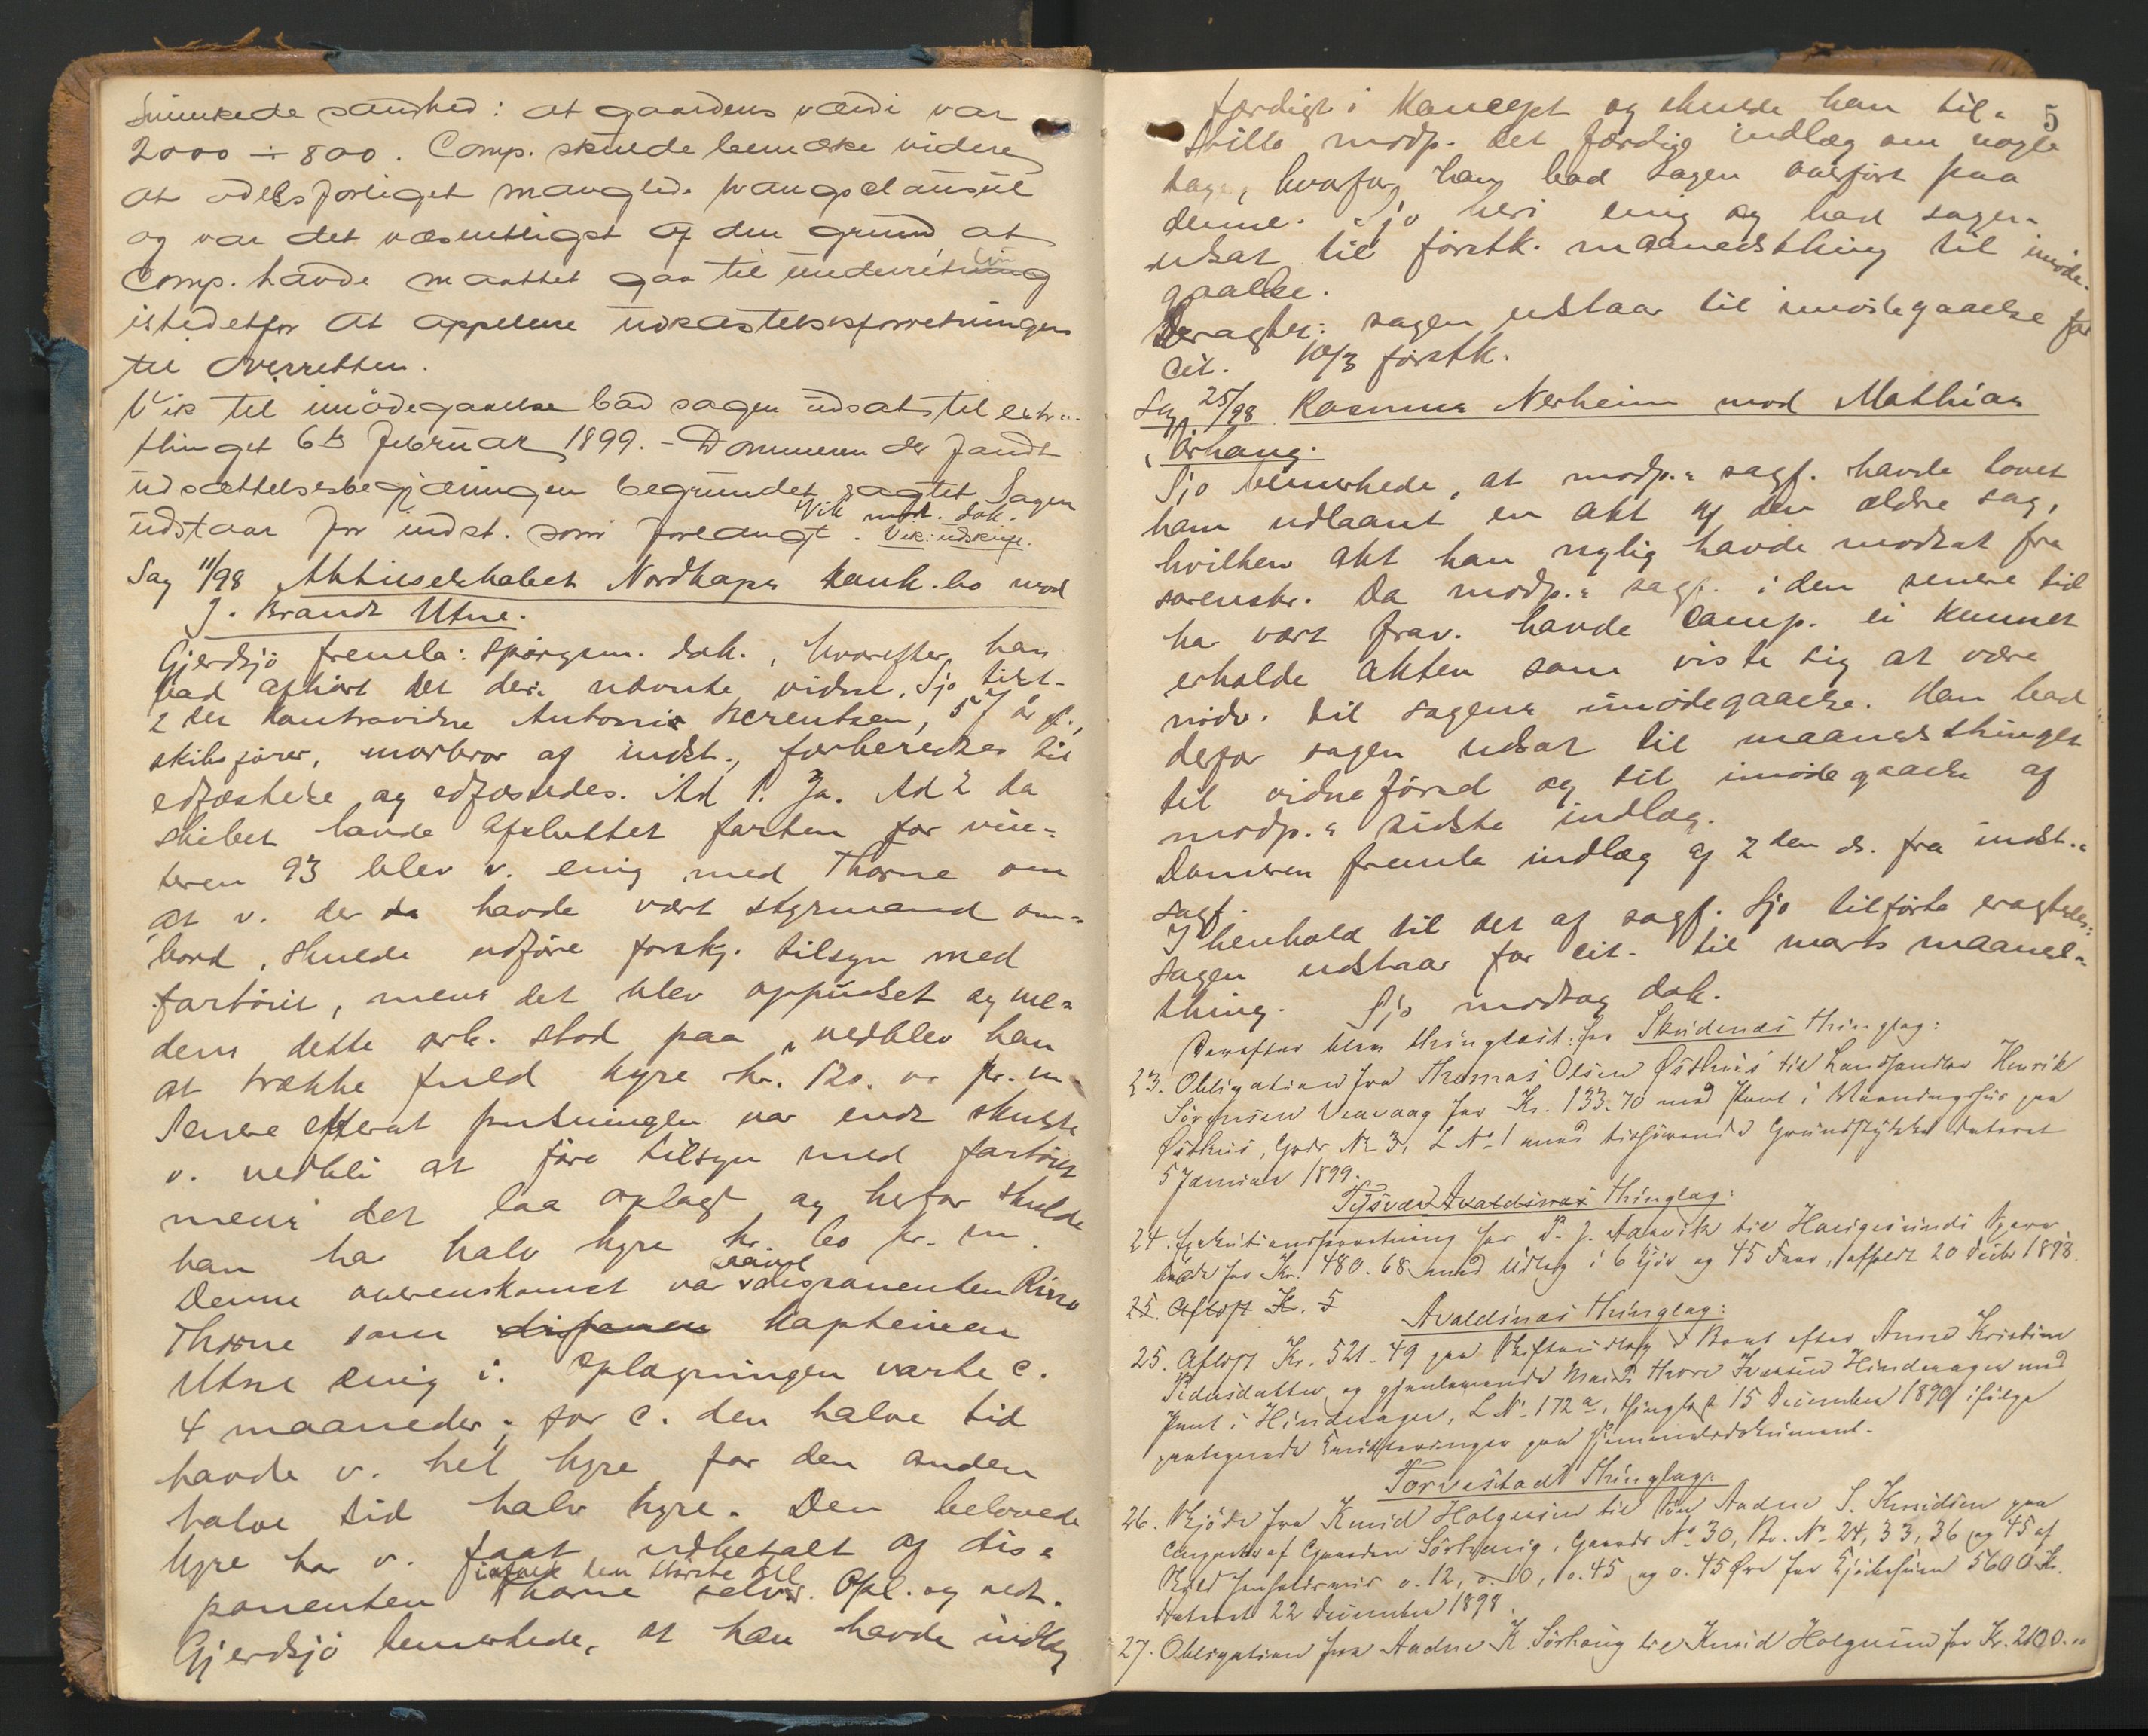 sminkede sandhed: at gaardens værdi var
2000 ÷ 800. Comp. skulde bemærke videre
at odelsforliget manglede tvangsclausul
og var det væsentligst af den grund, at
Comp. havde maattet gaa til underretning
istedetfor at appellere udkastelsesforretningen
til Overretten.
Vik til imødegaaelse bad sagen udsat til extra-
thinget 6te Februar 1899. – Dommeren der fandt
udsættelsesbegjæringen begrundet eragtet Sagen
udstaar for indst. som forlangt. Vik modt. dok.
Vik: udskrift.
Sag 11/98 Aktieselskabet Nordkaps hauk. co mod
J. Brandt Utne.
Gjerdsjø fremla: spørgsm. dok., hvorefter han
bad afhørt det deri nævnte vidne. Sjo tilst-
2det Kontravidne Antoni Berentsen, 57 år gl.,
skibsfører, morbror af indst., forberedtes til
edfæstelse og edfæstedes. Ad 1. Ja. Ad 2 da
skibet havde afsluttet farten for vin-
teren 93 blev v. enig med Thorne om
at v. der da havde vært styrmand om-
bord, skulde udføre forskj. tilsyn med
fartøiet, mens det blev oppudset og me-
dens dette arb. stod paa, vedblev han
at trække fuld hyre kr. 120.00 pr. m.
Senere efterat pudsningen var endt skulde
v. vedbli at føre tilsyn med fartøiet
mens det laa oplagt og herfor skulde
han ha halv hyre kr. 60 pr. m.
Denne overenskomst var saavel disponenten
Thorne som disponen kapteinen
Utne enig i. Oplagningen varte c.
4 maaneder; for c. den halve tid
havde v. hel hyre, for den anden
halve tid halv hyre. Den belovede
hyre har v. faat udbetalt af dis-
ialfald den største del
ponenten Thorne selv. Opl. og vedt.
Gjerdsjø bemerkede, at han havde indlæg
5
færdigt i Koncept og skulde han til-
stille modp. det færdige indlæg om nogle
dage, hvorfor han bad sagen overført paa
denne. Sjo heri enig og bad sagen
udsat til førstk. maanedsthing til imøde-
gaaelse.
Eragtes: sagen udstaar til imødegaaelse for
cit. 10/3 førstk.
Sag 25/98 Rasmus Nerheim mod Mathias
Ørhaug.
Sjo bemerkede, at modp.s sagf. havde lovet
ham udlaant en akt af den ældre sag,
hvilken akt han nylig havde modtat fra
sorenskr. Da modp.s sagf. i den senere tid
har vært frav. havde Comp. ei kunnet
erholde akten som viste sig at være
nødv. til sagens imødegaaelse. Han bad
derfor sagen udsat til maanedsthinget
til vidneførsel og til imødegaaelse af
modp.s sidste indlæg.
Domeren fremla indlæg af 2den ds. fra indst.s
sagf.
I henhold til det af sagf. Sjo tilførte eragtedes:
sagen udstaar for cit. til marts maaneds-
thing. Sjo modtog dok.
Derefter blev thinglæst: for Skudenæs thinglag:
23. Obligation fra Thomas Olsen Østhus til Landhandler Henrik
Sørensen Veavaag for Kr. 133.70 med Pant i Vaaningshus paa
Østhus, Gods No 3, L No 1 med tilhørende Grundstykke dateret
5 Januar 1899.
Tysvær Avaldsnæs thinglag:
24. Exekutionsforretning for P. J. Aarvik til Haugesunds Spare-
bank for Kr. 480.68 med Udlæg i 6 Kjør og 45 Faar, afholdt 20 Decbr 1898.
25. Aflyst Kr. 5
Avaldsnæs thinglag:
25. Aflyst Kr. 521.49 paa Skifteudlæg i Boet efter Anne Kristine
Pedersdatter og gjenlevende Mand Thore Iversen Hindenager med
Pant i Hindenager, L No 172a, thinglæst 15 December 1890 ifølge
paategnede Kvitteringer paa Hjemmelsdokument.
Torvestad thinglag:
26. Skjøde fra Knud Holgersen til Søn Aadne S. Knudsen paa
Parter af Gaarden Sørhaug, Gaards No 30, Br. No 24, 33, 36 og 45 af
Skyld henholdsvis 0.12, 0.10, 0.45 og 0.45 Øre for Kjøbesum 5600 Kr.
Dateret 22 December 1898.
27. Obligation fra Aadne K. Sørhaug til Knud Holgersen for Kr. 2100.00